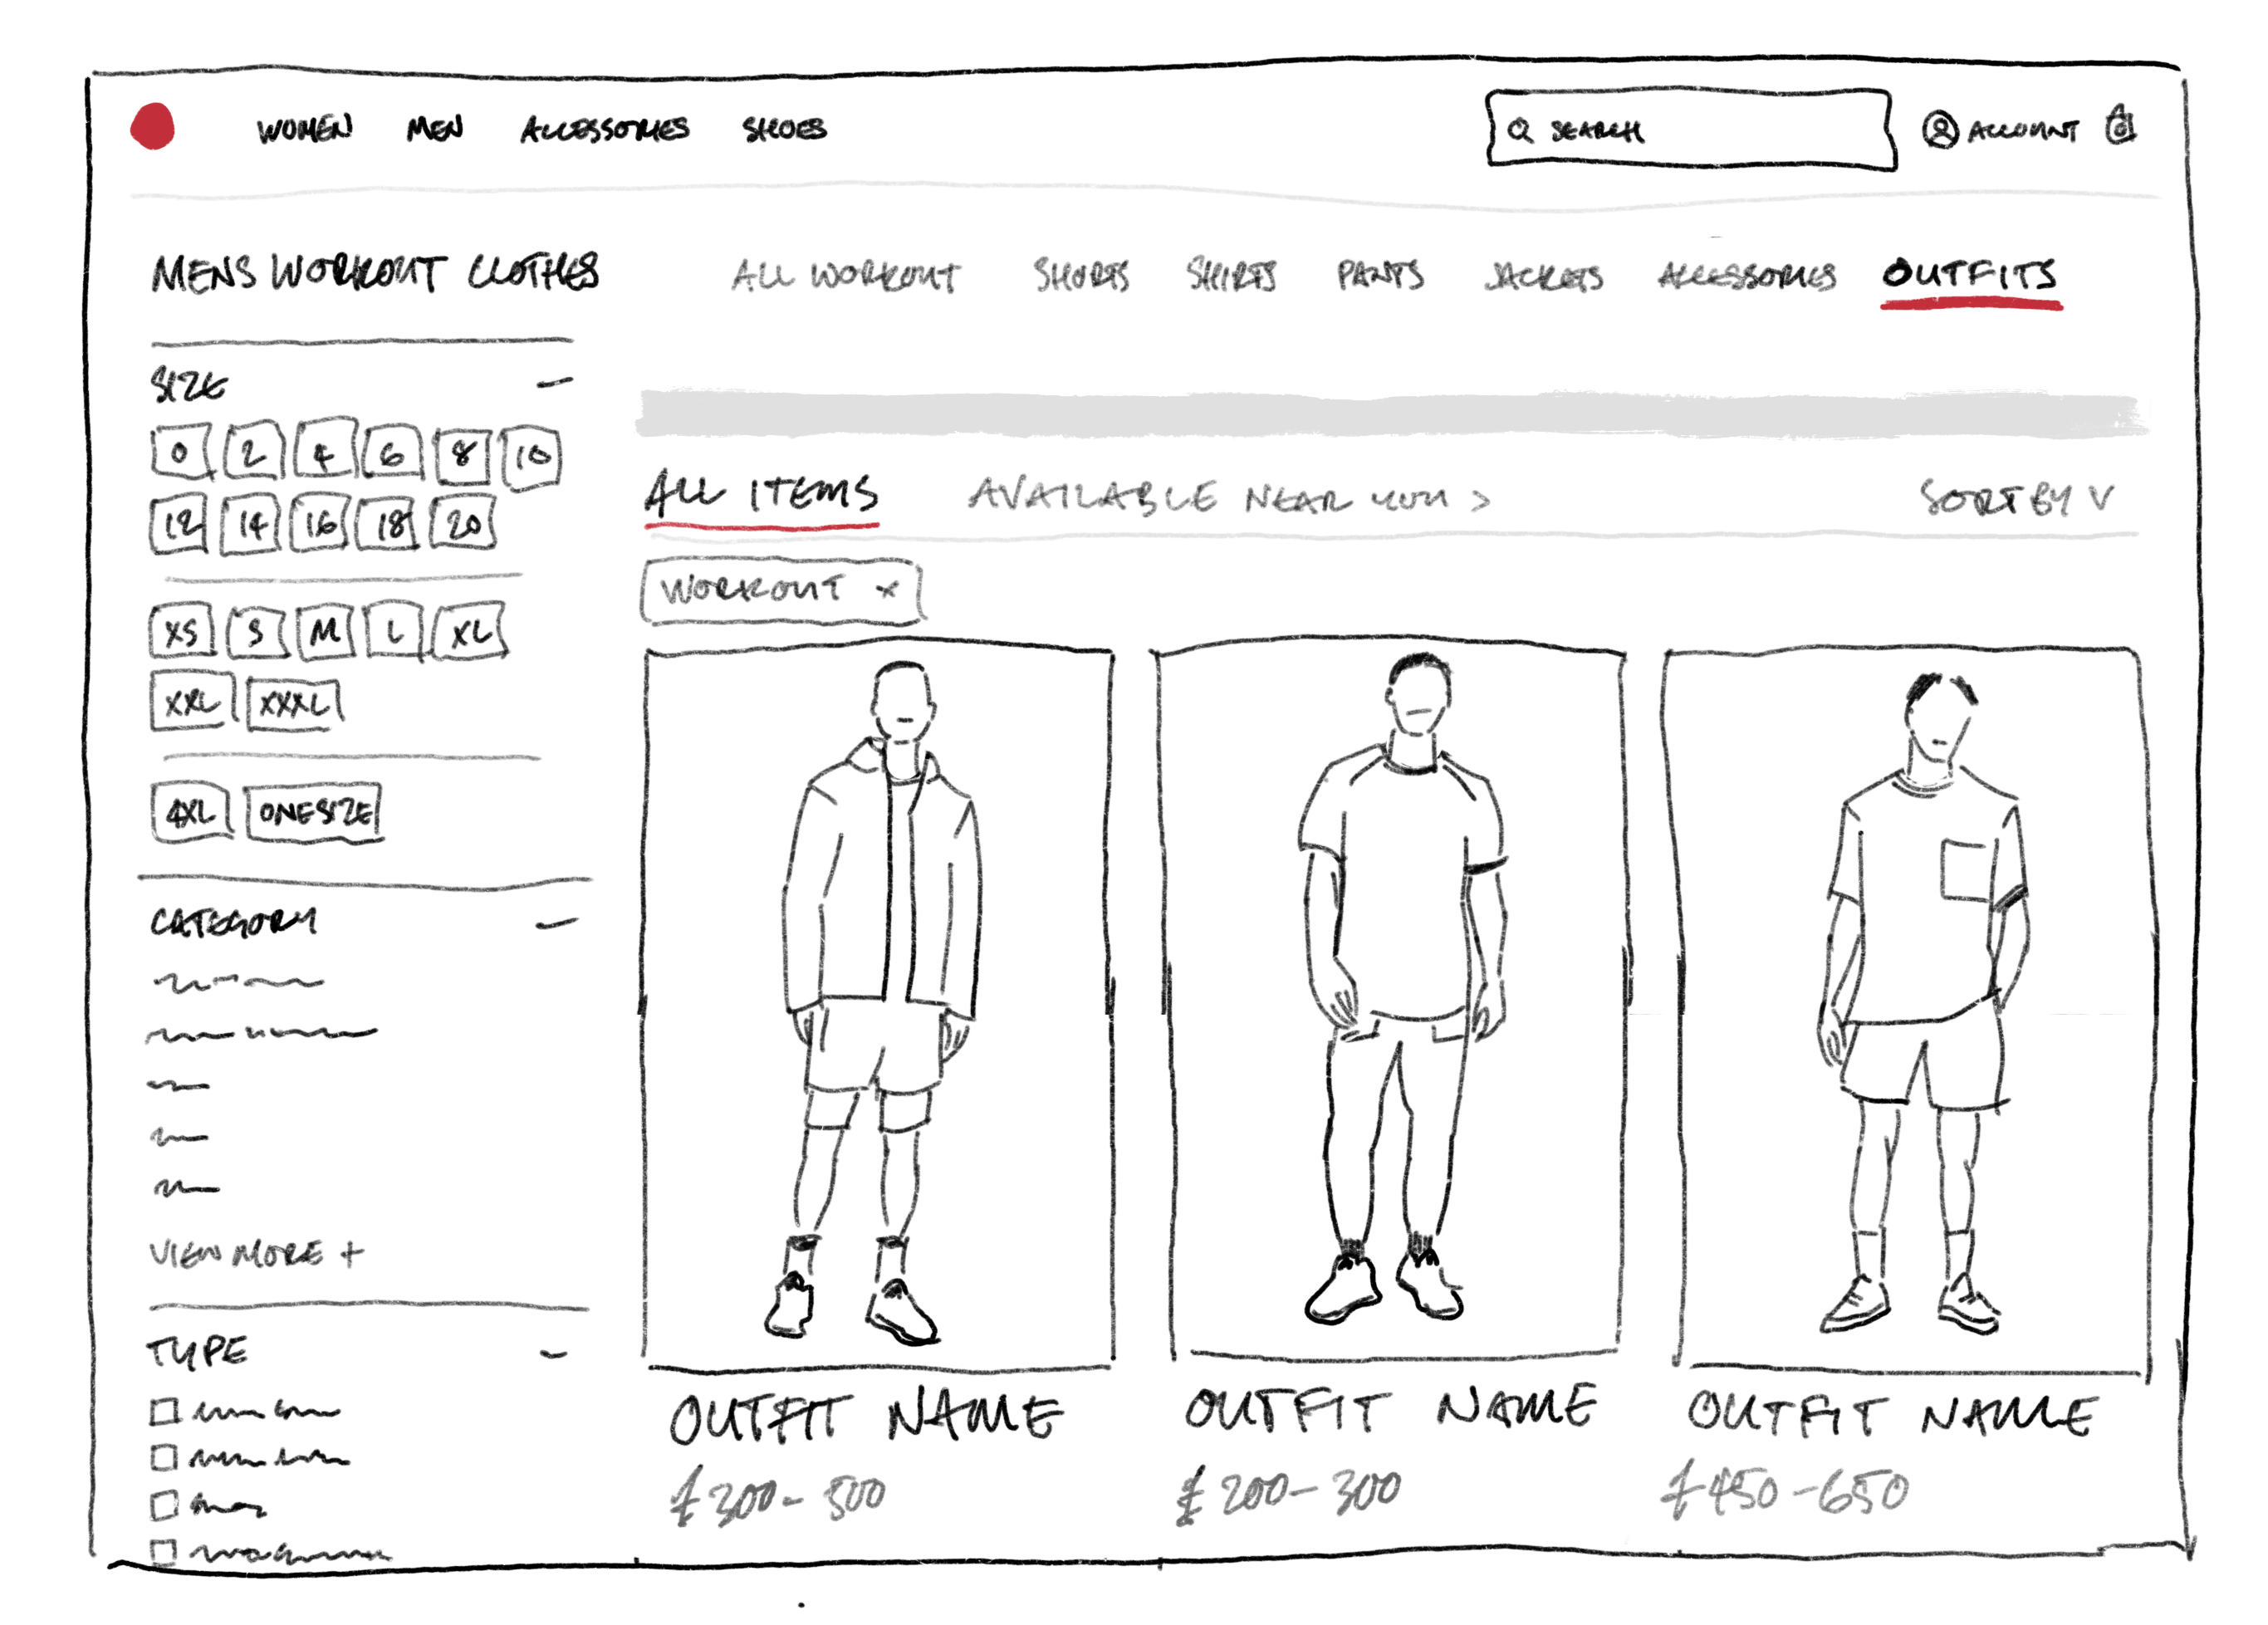 WOMEN MEN ACCESSORIES SHOES SEARCH ACCOUNT
MENS WORKOUT CLOTHES
ALL WORKOUT SHORTS SHIRTS PANTS JACKETS ACCESSORIES OUTFITS
SIZE -
0 2 4 6 8 10
12 14 16 18 20
XS S M L XL
XXL XXXL
4XL ONESIZE
CATEGORY -
VIEW MORE +
TYPE -
ALL ITEMS AVAILABLE NEAR YOU > SORT BY V
WORKOUT ×
OUTFIT NAME
£300-500
OUTFIT NAME
£200-300
OUTFIT NAME
£450-650